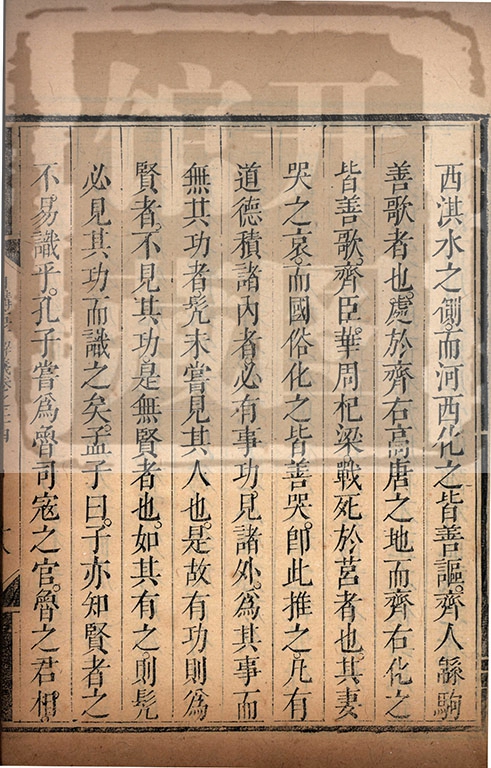 西淇水之側。而河西化之皆善謳。齊人緜駒
善歌者也。處於齊右高唐之地而齊右化之
皆善歌。齊臣。華周杞梁戰死於莒者也。其妻
哭之哀。而國俗化之皆善哭。卽此推之。凡有
道德積諸內者。必有事功。見諸外。爲其事而
無其功者。髡未嘗見其人也。是故有功則爲
賢者。不見其功。是無賢者也。如其有之則髡
必見其功而識之矣。孟子曰。子亦知賢者之
不易識乎。孔子嘗爲魯司寇之官。魯之君相。